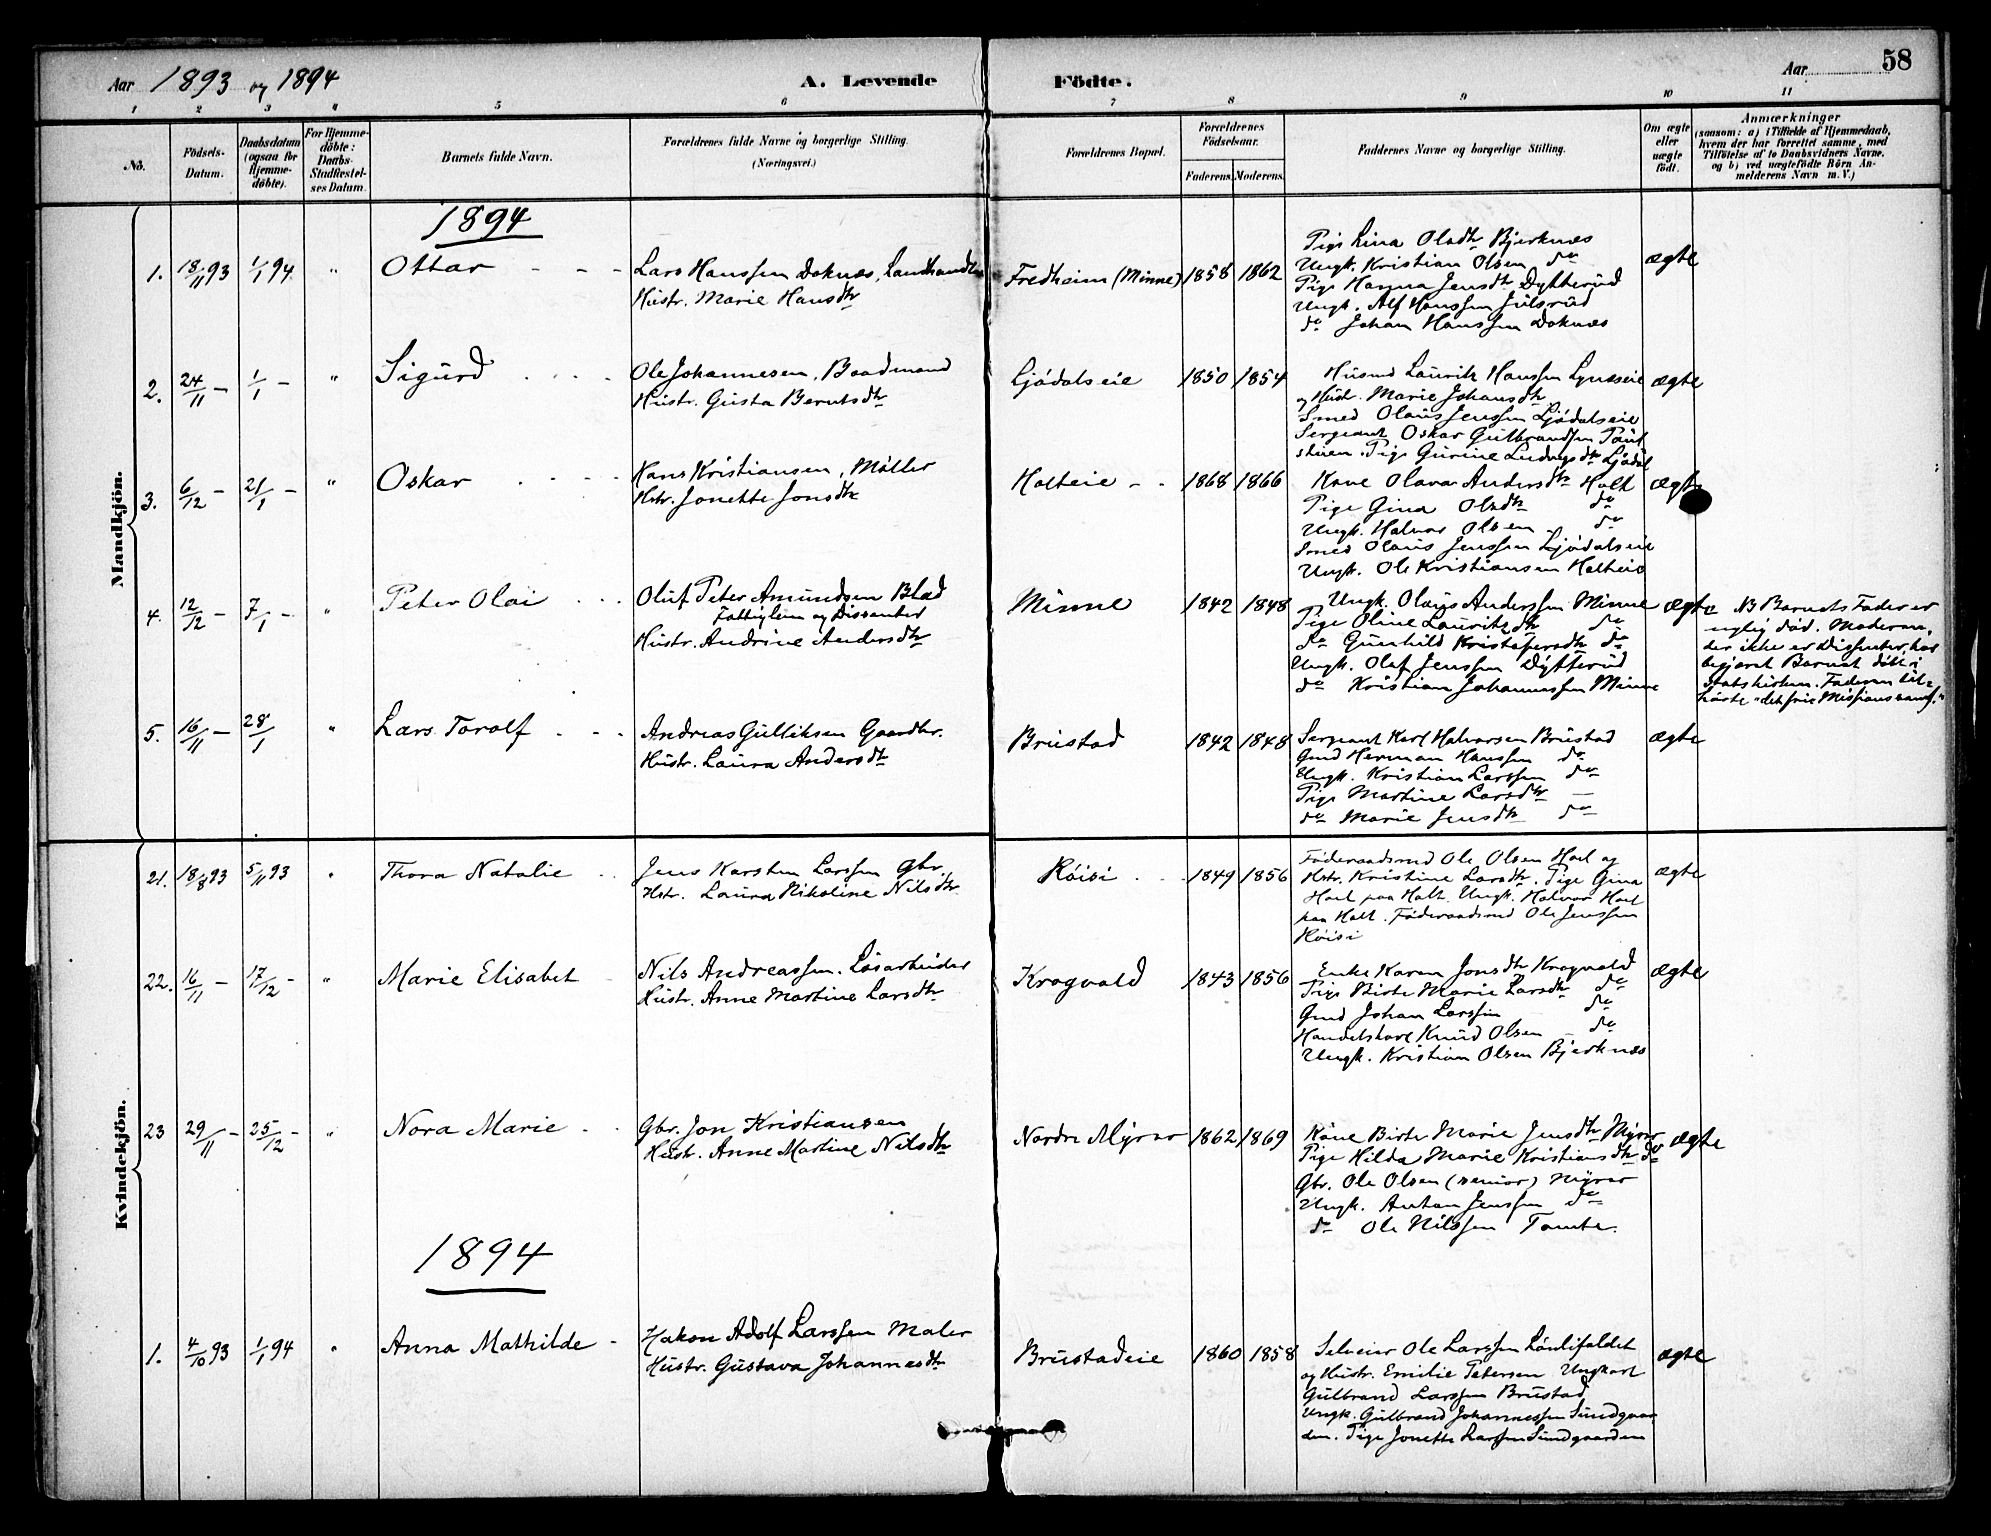 Aar 1893 og 1894
A. Levende Födte.
Aar 58
1 2 3 4 5 6 7 8 9 10 11
No.
Födsels-Datum.
Daabsdatum (ogsaa for Hjemme-döbte).
For Hjemme-döbte: Daabs-Stadfæstel-ses Datum.
Barnets fulde Navn.
Forældrenes fulde Navne og borgerlige Stilling. (Næringsvei.)
Forældrenes Bopæl.
Forældrenes Födselsaar.
Faderens. Moderens.
Faddernes Navne og borgerlige Stilling.
Om ægte eller uægte födt.
Anmærkninger
(saasom: a) i Tilfælde af Hjemmedaab,
hvem der har forrettet samme, med
Tilföielse af to Daabsvidners Navne.
og b) ved uægtefödte Börn An-
melderens Navn m. V.)
Mandkjön.
1894
1. 18/11 93 1/1 94 " Ottar
Lars Hanssen Doknæs, Landhandler
Hustr. Marie Hansdtr
Fredheim (Minne) 1858 1862
Pige Lina Olsdtr Bjerknæs
Ungk. Kristian Olsen do
Pige Hanna Jensdtr Dytterud
Ungk. Alf Hanssen Julsrud
do Johan Hanssen Doknæs
ægte
2. 24/11 – 1/1 – " Sigurd
Ole Johannesen, Baadmand
Hustr. Gusta Berntsdtr
Ljødalseie 1850 1854
Husmd Lauritz Hanssen Lynæseie
og Hustr. Marie Johansdtr
Smed Olaus Jenssen Ljødalseie
Sergeant Oskar Gulbrandsen Paul
stuen. Pige Gurine Ludvigsdtr Ljødal
ægte
3. 6/12 – 21/1 – " Oskar
Hans Kristiansen, Møller
Hstr. Jonette Jonsdtr
Holteie 1868 1866
Kone Olava Andersdtr Holt
Pige Gina Olsdtr do
Ungk. Halvor Olsen do
Smed Olaus Jenssen Ljødalseie
Ungk. Ole Kristiansen Holteie
ægte
4. 12/12 – 7/1 – " Peter Olai
Oluf Peter Amundsen Blad
Fattiglem og Dissenter
Hustr. Andrine Andersdtr
Minne 1842 1848
Ungk. Olaus Anderssen Minne
Pige Oline Lauritzdtr do
do Gunhild Kristofersdtr do
Ungk. Olaf Jenssen Dytterud
do Kristian Johannessen Minne
ægte
NB Barnets Fader er
nylig død. Moderen,
der ikke er Dissenter, har
begjæret Barnet døbt i
Statskirken. Faderen til-
hørte "det frie Missionssamf."
5. 16/11 – 28/1 " Lars Torolf
Andreas Gulliksen Gaardbr.
Hustr. Laura Andersdtr
Brustad 1842 1848
Sergeant Karl Halvorsen Brustad
Gmd Herman Hanssen do
Ungk. Kristian Larssen do
Pige Martine Larsdtr —
do Marie Jensdtr do
ægte
Kvindekjön.
21. 18/8 93 5/11 93 " Thora Natalie
Jens Karsten Larssen Gbr.
Hstr. Laura Nikoline Nilsdtr
Røisi 1849 1856
Føderaadsmd Ole Olsen Holt og
Hstr. Kristine Larsdtr. Pige Gina
Holt paa Holt. Ungk. Halvor Holt
paa Holt. Føderaadsmd Ole Jenssen
Røisi
ægte
22. 16/11 – 17/12 – " Marie Elisabet
Nils Andreassen. Løsarbeider
Hustr. Anne Martine Larsdtr
Krogvold 1843 1856
Enke Karen Jonsdtr Krogvold
Pige Birte Marie Larsdtr do
Gmd Johan Larssen do
Handelskarl Knud Olsen do
Ungk. Kristian Olsen Bjerknæs
ægte
23 29/11 – 25/12 – " Nora Marie
Gbr. Jon Kristiansen
Hustr. Anne Martine Nilsdtr
Nordre Myrer 1862 1869
Kone Birte Marie Jensdtr Myrer
Pige Hilda Marie Kristiansdtr do
Gbr. Ole Olsen (senior) Myrer
Ungk. Anton Jenssen do
do Ole Nilssen Tomte.
ægte
1894
1. 4/10 93 1/1 94 " Anna Mathilde
Hakon Adolf Larssen Maler
Hustr. Gustava Johannesdtr
Brustadeie 1860 1858
Selveier Ole Larssen
og Hustr. Emilie Petersen Ungkarl
Gulbrand Larssen Brustad
Ungk. Gulbrand Johannessen Sundgaar
den. Pige Jonette Larssen Sundgaarden
ægte